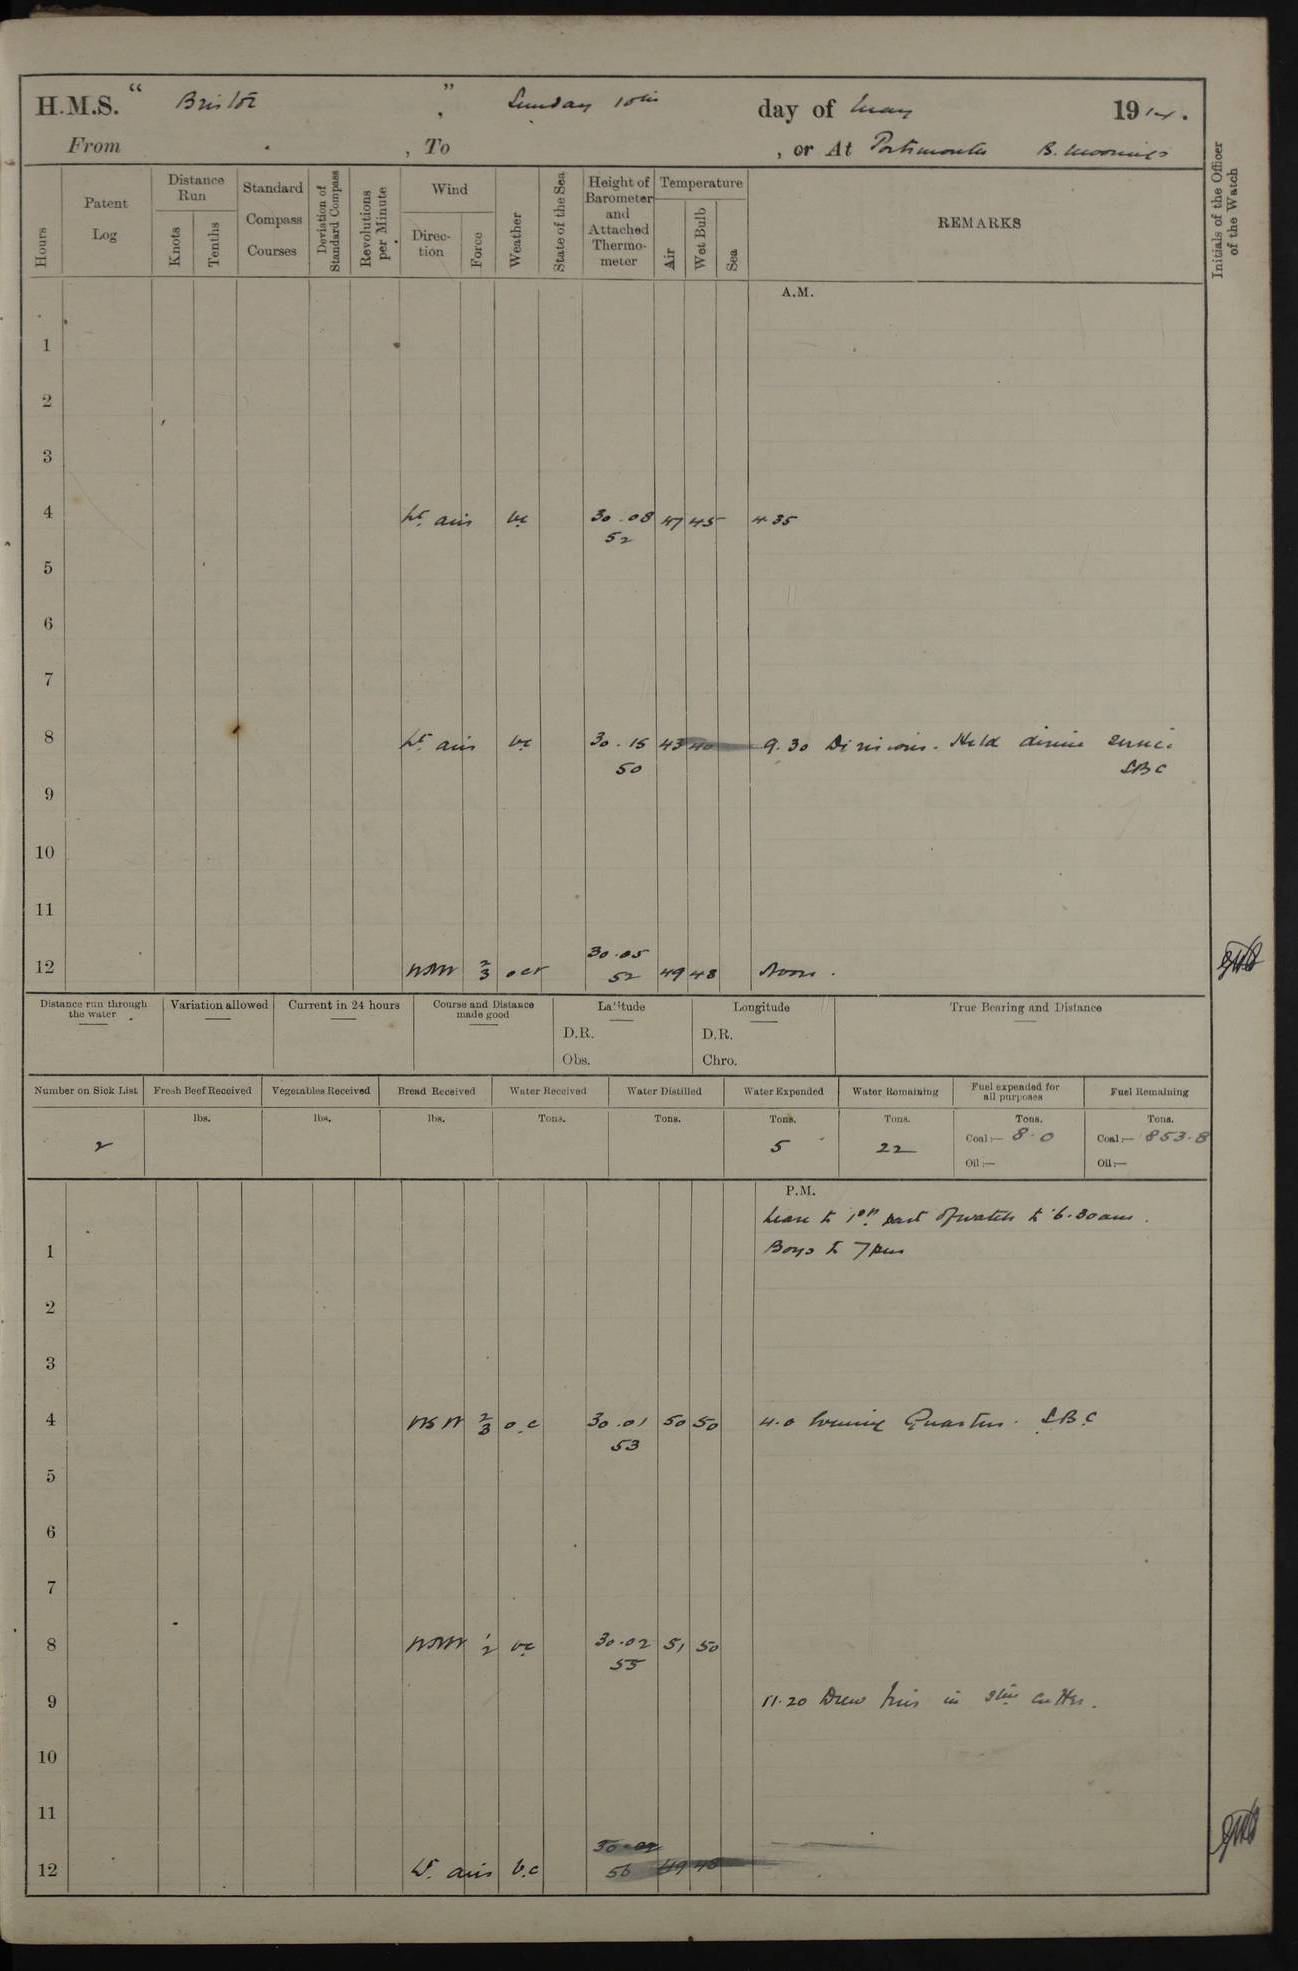 H.M.S. “ Bristol ”, Sunday 10th day of May 1914.
From , To , or At Portsmouth
Hours
Patent Log
Distance Run
Knots
Tenths
Standard Compass Courses
Deviation of Standard Compass
Revolutions per Minute
Wind
Direction
Force
Weather
State of the Sea
Height of Barometer and Attached Thermometer
Temperature
Air
Wet Bulb
Sea
REMARKS
Initials of the Officer of the Watch
A.M.
1
2
3
4 Lt airs bc 30.08 47 45 4.35
52
5
6
7
8 Lt airs bc 30.15 43 40 9.30 Divisions. Held divine service
50 LBC
9
10
11
30.05
12 WNW 2/3 ocr 52 49 48 Noon.
Distance run through the water
Variation allowed
Current in 24 hours
Course and Distance made good
Latitude
D.R.
Obs.
Longitude
D.R.
Chro.
True Bearing and Distance
Number on Sick List
Fresh Beef Received
Vegetables Received
Bread Received
Water Received
Water Distilled
Water Expended
Water Remaining
Fuel expended for all purposes
Fuel Remaining
lbs. lbs. lbs. Tons. Tons. Tons. Tons. Tons. Tons.
2 5 22 Coal:— 8.0 Coal:— 853.8
Oil:— Oil:—
P.M.
Leave to 1st part of watch to 6.30am.
1 Boys to 7pm
2
3
4 WSW 2/3 o.c 30.01 50 50 4.0 Evening Quarters. LBC
53
5
6
7
8 WNW 1/2 bc 30.02 51 50
55
9 11.20 Drew fires in cutter.
10
11
30.02
12 Lt. airs b.c 56 49 48